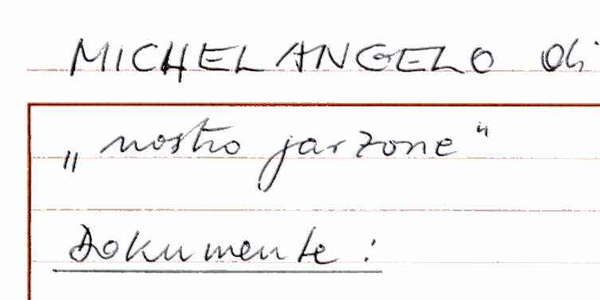 MICHELANGELO di
„ nostro jarzone “
Dokumente :